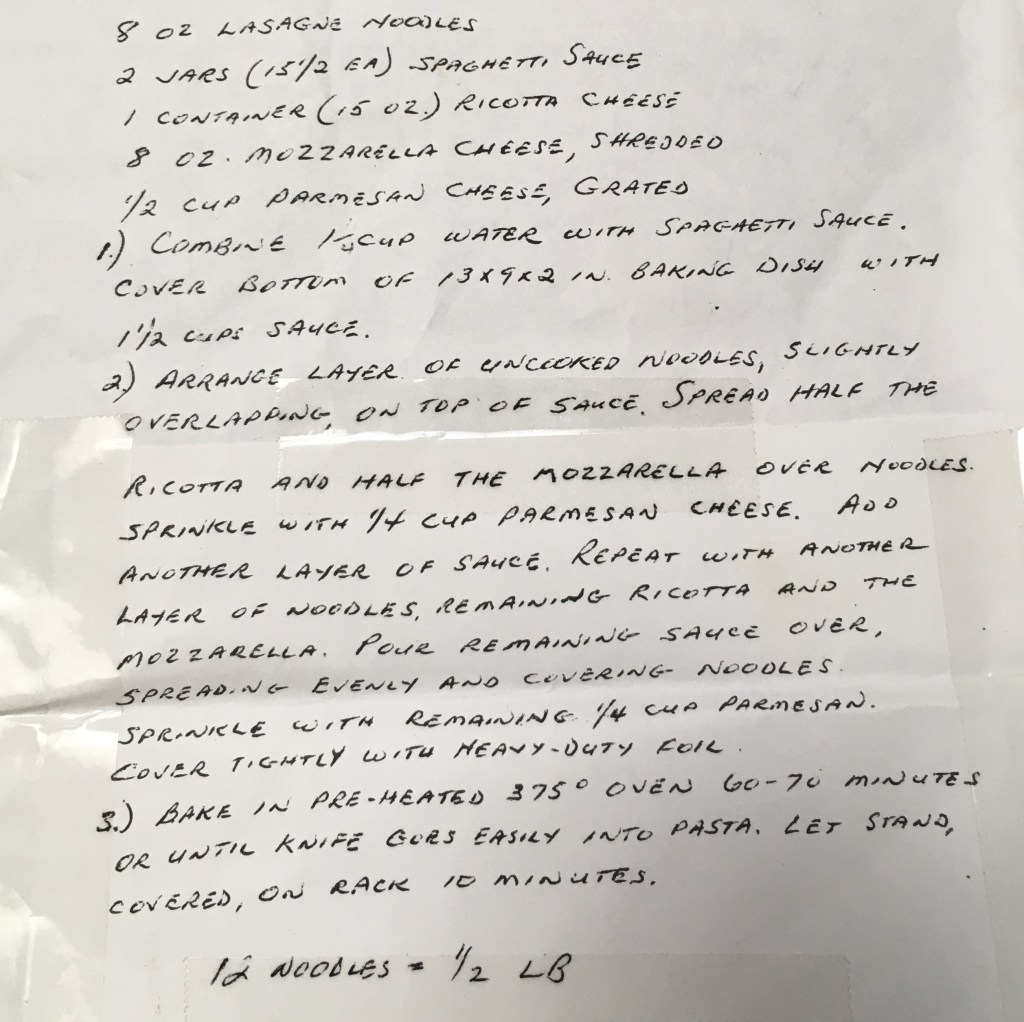 8 OZ LASAGNE NOODLES
2 JARS (15 1/2 EA) SPAGHETTI SAUCE
1 CONTAINER (15 OZ.) RICOTTA CHEESE
8 OZ. MOZZARELLA CHEESE, SHREDDED
1/2 CUP PARMESAN CHEESE, GRATED
1.) COMBINE CUP WATER WITH SPAGHETTI SAUCE.
COVER BOTTOM OF 13X9X2 IN. BAKING DISH WITH
1 1/2 CUPS SAUCE.
2) ARRANGE LAYER OF UNCOOKED NOODLES, SLIGHTLY
OVERLAPPING, ON TOP OF SAUCE. SPREAD HALF THE
RICOTTA AND HALF THE MOZZARELLA OVER NOODLES.
SPRINKLE WITH 1/4 CUP PARMESAN CHEESE. ADD
ANOTHER LAYER OF SAUCE. REPEAT WITH ANOTHER
LAYER OF NOODLES, REMAINING RICOTTA AND THE
MOZZARELLA. POUR REMAINING SAUCE OVER,
SPREADING EVENLY AND COVERING NOODLES.
SPRINKLE WITH REMAINING 1/4 CUP PARMESAN.
COVER TIGHTLY WITH HEAVY-DUTY FOIL.
3.) BAKE IN PRE-HEATED 375° OVEN 60-70 MINUTES
OR UNTIL KNIFE GOES EASILY INTO PASTA. LET STAND,
COVERED, ON RACK 10 MINUTES.
12 NOODLES = 1/2 LB